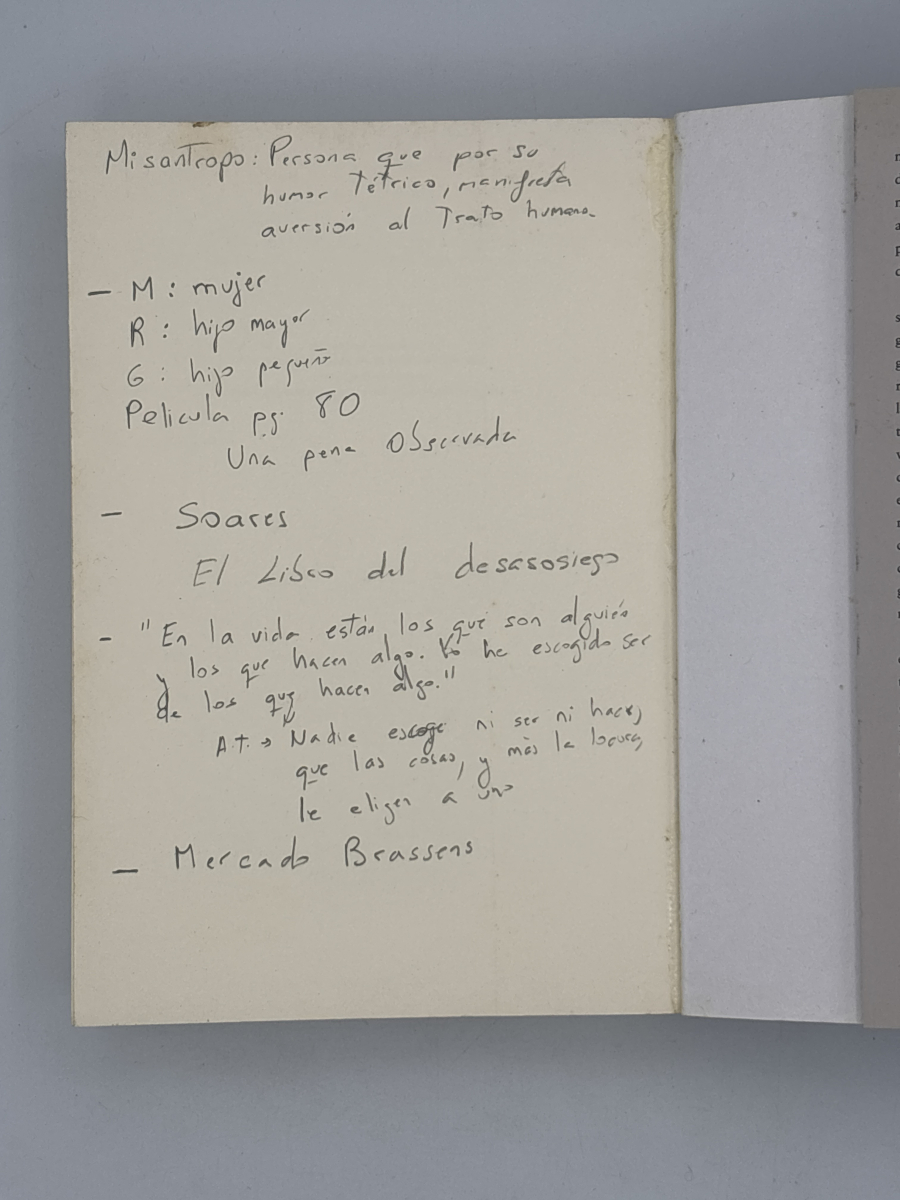 Misantropo: Persona que por su
humor tétrico, manifiesta
aversión al Trato humano.
— M : mujer
R : hijo mayor
G : hijo pequeño
Pelicula pg. 80
Una pena Observada
— Soares
El Libro del desasosiego
- "En la vida están los que son alguién
y los que hacen algo. Yo he escogido ser
de los que hacen algo."
A.T. → Nadie escoge ni ser ni hacer,
que las cosas, y más la locura,
le eligen a uno
— Mercado Brassens